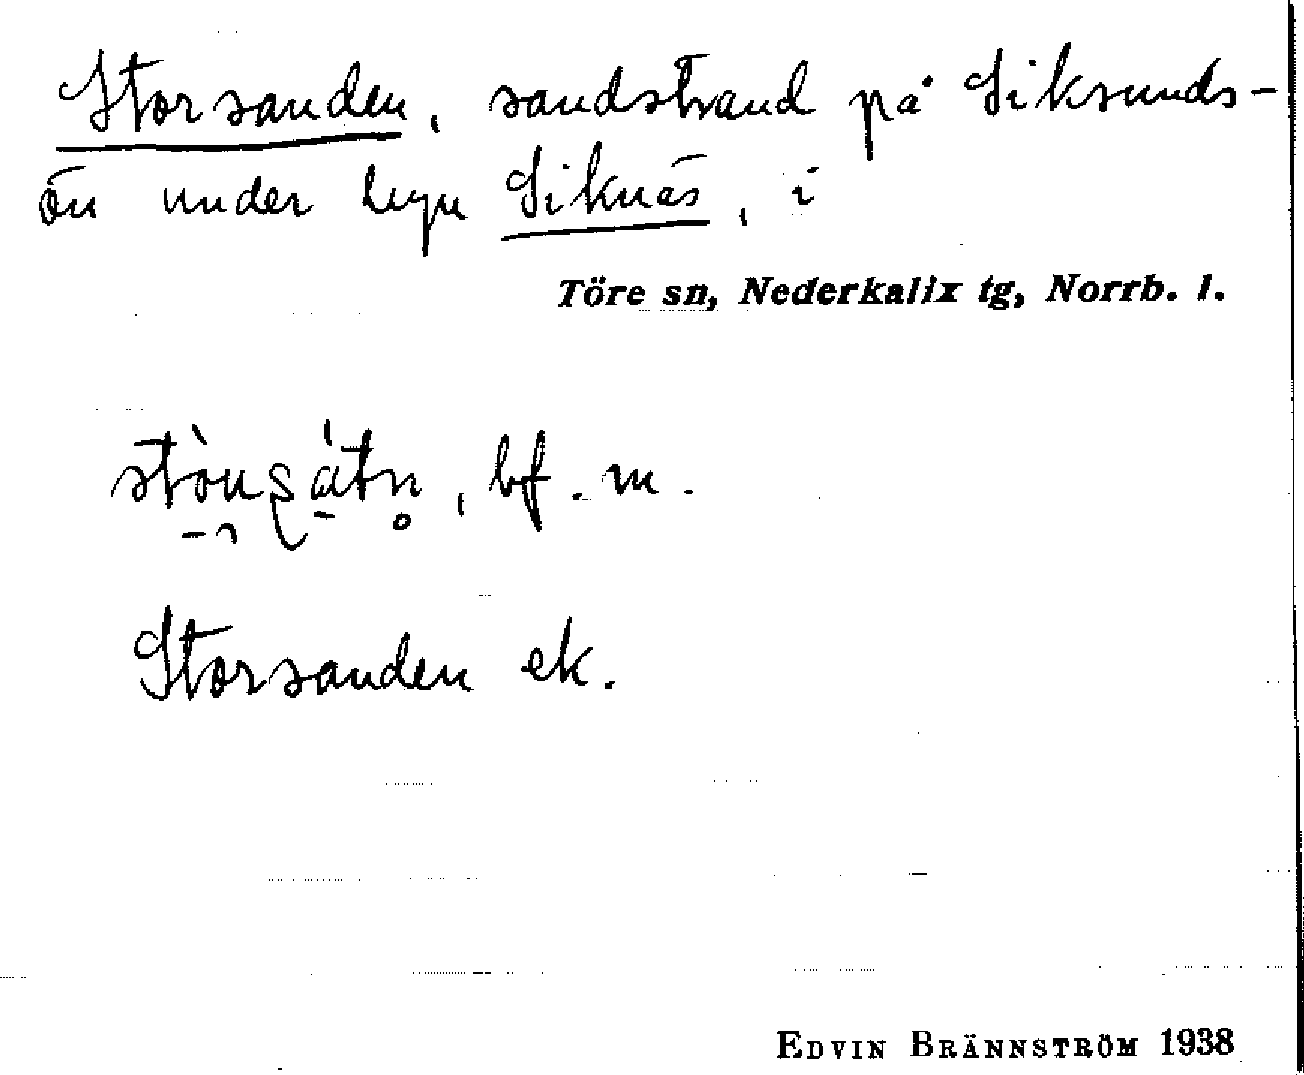 Storsanden, sandstrand på Siksunds-
ön under byn Siknäs, i
Töre sn, Nederkalix tg, Norrb. l.
bf. m.
Storsanden ek.
EDVIN BRÄNNSTRÖM 1938